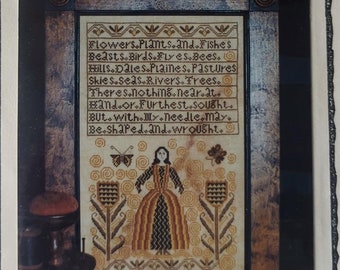 Flowers Plants and Fishes
Beasts Birds Flyes Bees
Hills Dales Plaines Pastures
Skies Seas Rivers Trees
Theres nothing near at
Hand or Furthest sought
But with my needle may
Be shaped and wrought